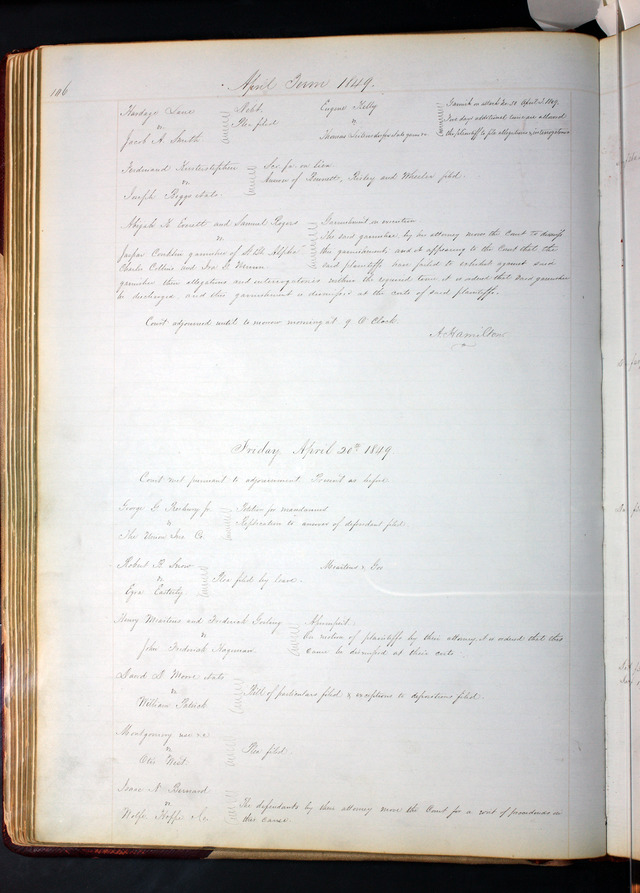 106
April Term 1849.
Hardage Lane
vs
Jacob A. Smith
Debt.
Plea filed
Eugene Kelly
vs
Thomas
Garnish on
two days additional time are allowed
the plaintiff to file allegations & interrogatories
Ferdinand
vs
Joseph Biggs et als.
Sci. fa. on lien
Answer of Bennett, and Wheeler filed.
Abijah H. Everett and Samuel Rogers
vs
Jasper Conklin garnishee of
Charles Collins and
Garnishment on execution
The said garnishee, by his attorney moves the Court to dismiss
the garnishment, and it appearing to the Court that the
said plaintiffs have failed to exhibit against said
garnishee their allegations and interrogatories within the required time, it is ordered that said garnishee
be discharged, and this garnishment is dismissed at the costs of said plaintiffs.
Court adjourned until to morrow morning at 9 O Clock.
A. Hamilton
Friday April 20th 1849
Court met pursuant to adjournment Present as before
George G. Jr.
vs
The Union Ins. Co.
Petition for
Replication to answer of defendant filed.
Robert B. Snow
vs
Ezra
Plea filed by leave.
Henry and Frederick
vs
John Frederick Hageman
Assumpsit.
On motion of plaintiffs by their attorney, it is ordered that this
cause be dismissed at their costs.
David D. Moore et als
vs
William Patrick
Bill of particulars filed & exceptions to depositions filed.
Montgomery use &c
vs
Otis West
Plea filed.
Isaac N. Bernard
vs
Wolfe Hoppe &c.
The defendants by their attorney move the Court for a writ of procedendo in
this cause.